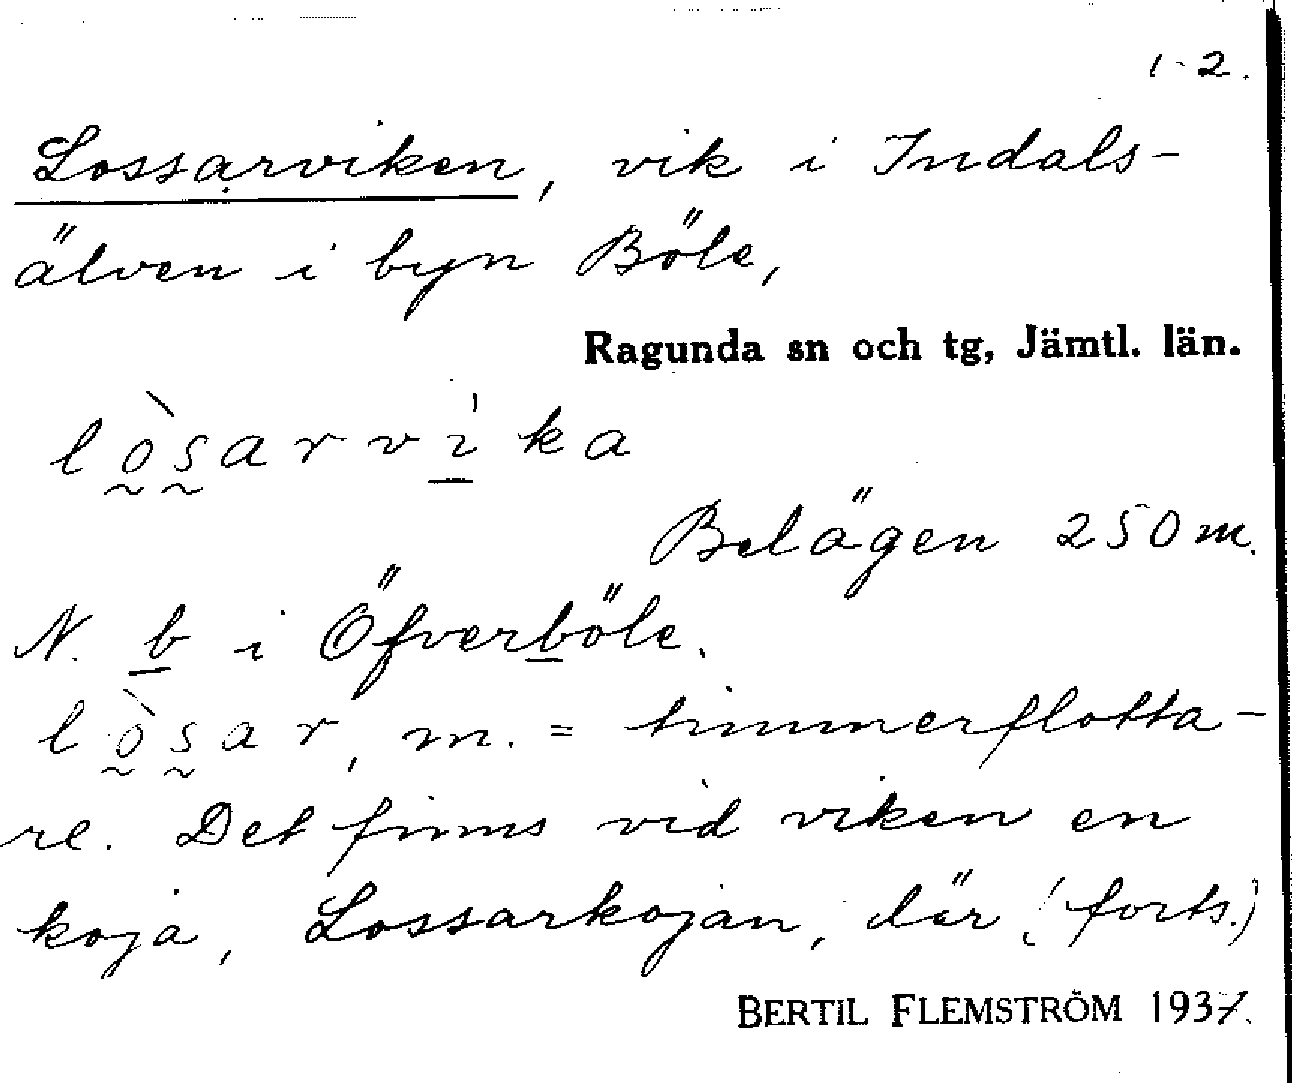 1-2.
Lossarviken, vik i Indals-
älven i byn Böle,
Ragunda sn och tg, Jämtl. län.
lòsarvi̱ka
Belägen 250 m.
N. b i Öfverböle.
lòsar, m. = timmerflotta-
re. Det finns vid viken en
koja, Lossarkojan, där (forts.)
BERTIL FLEMSTRÖM 1937.